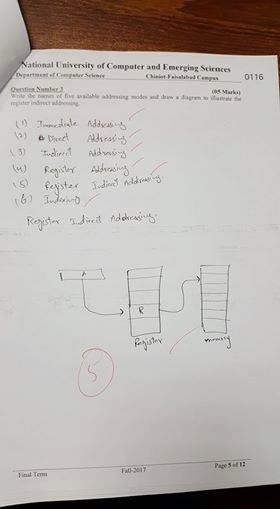 National University of Computer and Emerging Sciences
Department of Computer Science Chiniot-Faisalabad Campus 0116
Question Number 3 (05 Marks)
Write the names of five available addressing modes and draw a diagram to illustrate the
register indirect addressing.
(1) Immediate Addressing
(2) Direct Addressing
(3) Indirect Addressing
(4) Register Addressing
(5) Register Indirect Addressing.
(6) Indexing
Register Indirect Addressing.
A
R
Register memory
5
Final Term Fall-2017 Page 5 of 12